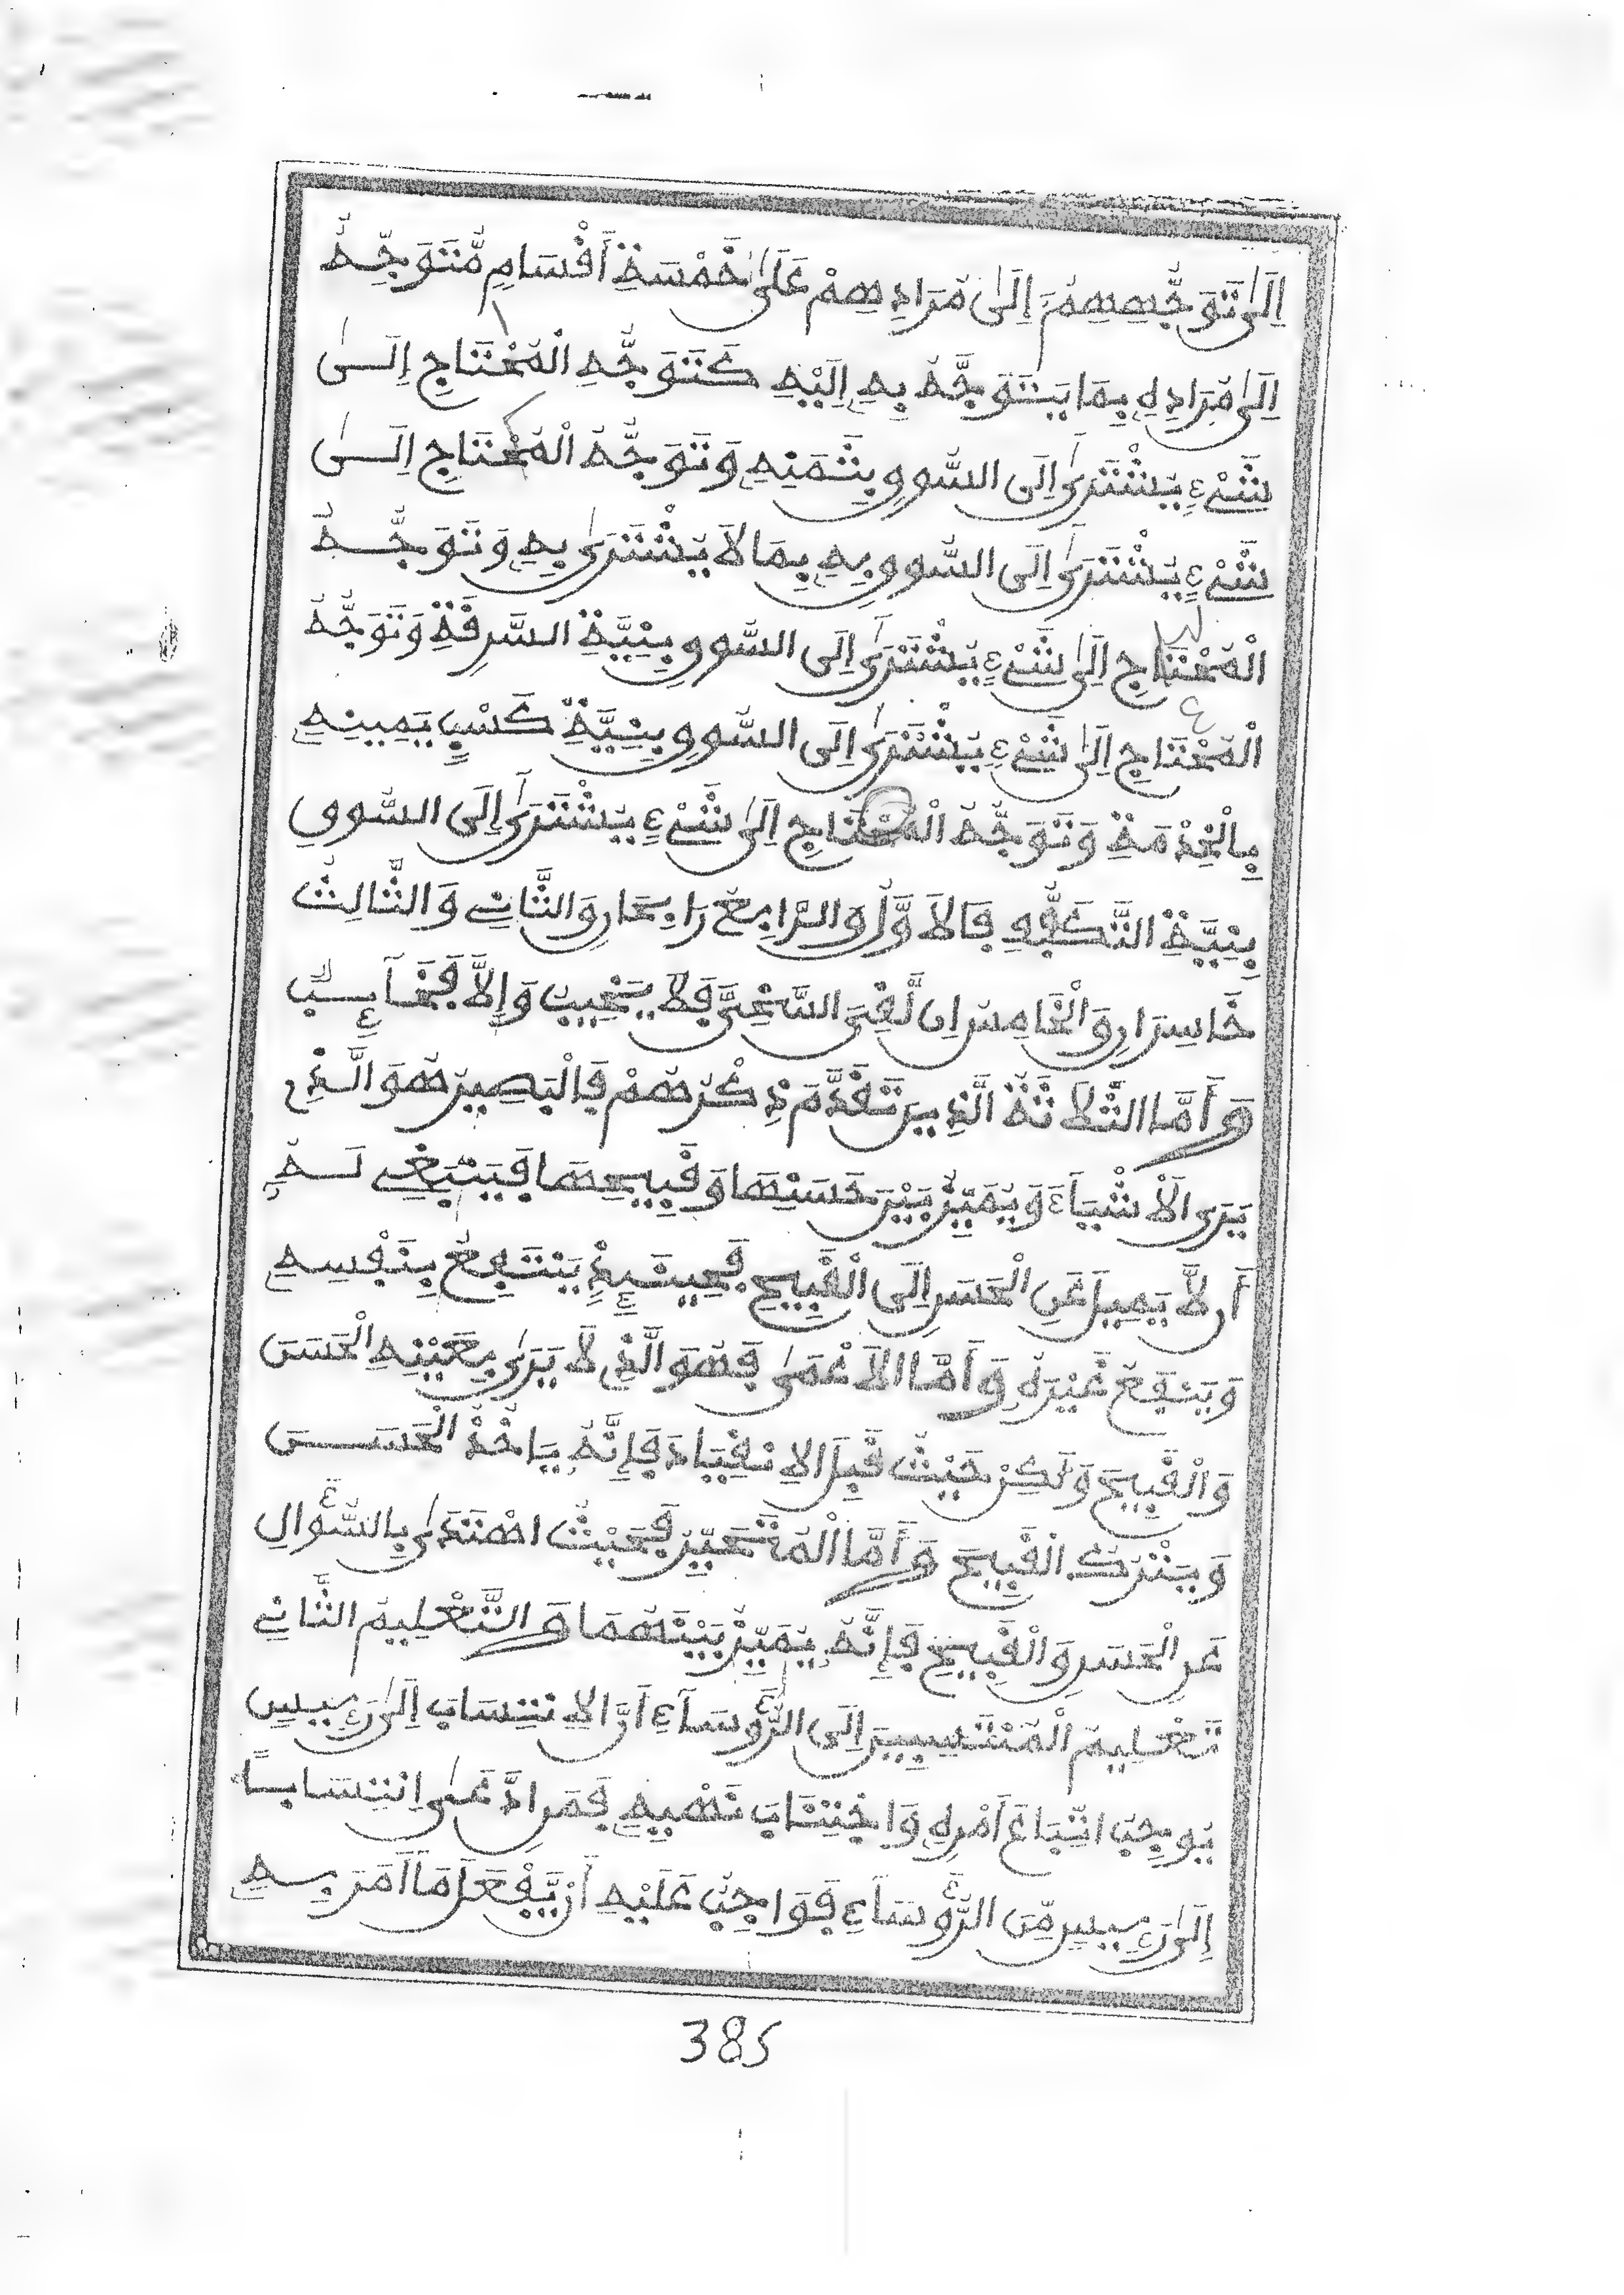 إِلَىٰ تَوَجُّهِهِمْ إِلَىٰ مُرَادِهِمْ عَلَىٰ خَمْسَةِ أَقْسَامٍ مُّتَوَجِّهٌ
إِلَىٰ مُرَادِهِ بِمَا يُتَوَجَّهُ بِهِ إِلَيْهِ كَتَوَجُّهِ الْمُحْتَاجِ إِلَىٰ
شَيْءٍ يُشْتَرَىٰ إِلَى السُّوقِ بِثَمَنِهِ وَتَوَجُّهُ الْمُحْتَاجِ إِلَىٰ
شَيْءٍ يُشْتَرَىٰ إِلَى السُّوقِ بِهِ بِمَا لَا يُشْتَرَىٰ بِهِ وَتَوَجُّهُ
الْمُحْتَاجِ إِلَىٰ شَيْءٍ يُشْتَرَىٰ إِلَى السُّوقِ بِنِيَّةِ السَّرِقَةِ وَتَوَجُّهُ
الْمُحْتَاجِ إِلَىٰ شَيْءٍ يُشْتَرَىٰ إِلَى السُّوقِ بِنِيَّةِ كَسْبِ يَمِينِهِ
بِالْخِدْمَةِ وَتَوَجُّهُ الْمُحْتَاجِ إِلَىٰ شَيْءٍ يُشْتَرَىٰ إِلَى السُّوقِ
بِنِيَّةِ التَّكَفُّفِ فَالْأَوَّلُ وَالرَّابِعُ رَابِحَانِ وَالثَّانِي وَالثَّالِثُ
خَاسِرَانِ وَالْخَامِسُ إِن لَّقِيَ السَّخِيَّ فَلَا يَخِيبُ وَإِلَّا فَخَآئِبٌ
وَأَمَّا الثَّلَاثَةُ الَّذِينَ تَقَدَّمَ ذِكْرُهُمْ فَالْبَصِيرُ هُوَ الَّذِي
يَرَى الْأَشْيَآءَ وَيُمَيِّزُ بَيْنَ حَسَنِهَا وَقَبِيحِهَا فَيَنْبَغِي لَهُ
أَن لَّا يَمِيلَ عَنِ الْحَسَنِ إِلَى الْقَبِيحِ فَحِينَئِذٍ يَنْتَفِعُ بِنَفْسِهِ
وَيَنْفَعُ غَيْرَهُ وَأَمَّا الْأَعْمَىٰ فَهُوَ الَّذِي لَا يَرَىٰ بِعَيْنِهِ الْحَسَنَ
وَالْقَبِيحَ وَلَكِنْ حَيْثُ قَبِلَ الِانْقِيَادَ فَإِنَّهُ يَاخُذُ الْحَسَنَ
وَيَتْرُكُ الْقَبِيحَ وَأَمَّا الْمُتَحَيِّرُ فَحَيْثُ اهْتَدَىٰ بِالسُّؤَالِ
عَنِ الْحَسَنِ وَالْقَبِيحِ فَإِنَّهُ يُمَيِّزُ بَيْنَهُمَا وَالتَّعْلِيمُ الثَّانِي
تَعْلِيمُ الْمُنْتَسِبِينَ إِلَى الرُّؤَسَآءِ أَنَّ الِانْتِسَابَ إِلَىٰ رَئِيسٍ
يُوجِبُ اتِّبَاعَ أَمْرِهِ وَاجْتِنَابَ نَهْيِهِ فَمَنِ ادَّعَىٰ انْتِسَاباً
إِلَىٰ رَئِيسٍ مِّنَ الرُّؤَسَآءِ فَوَاجِبٌ عَلَيْهِ أَنْ يَّفْعَلَ مَا أَمَرَ بِهِ
385